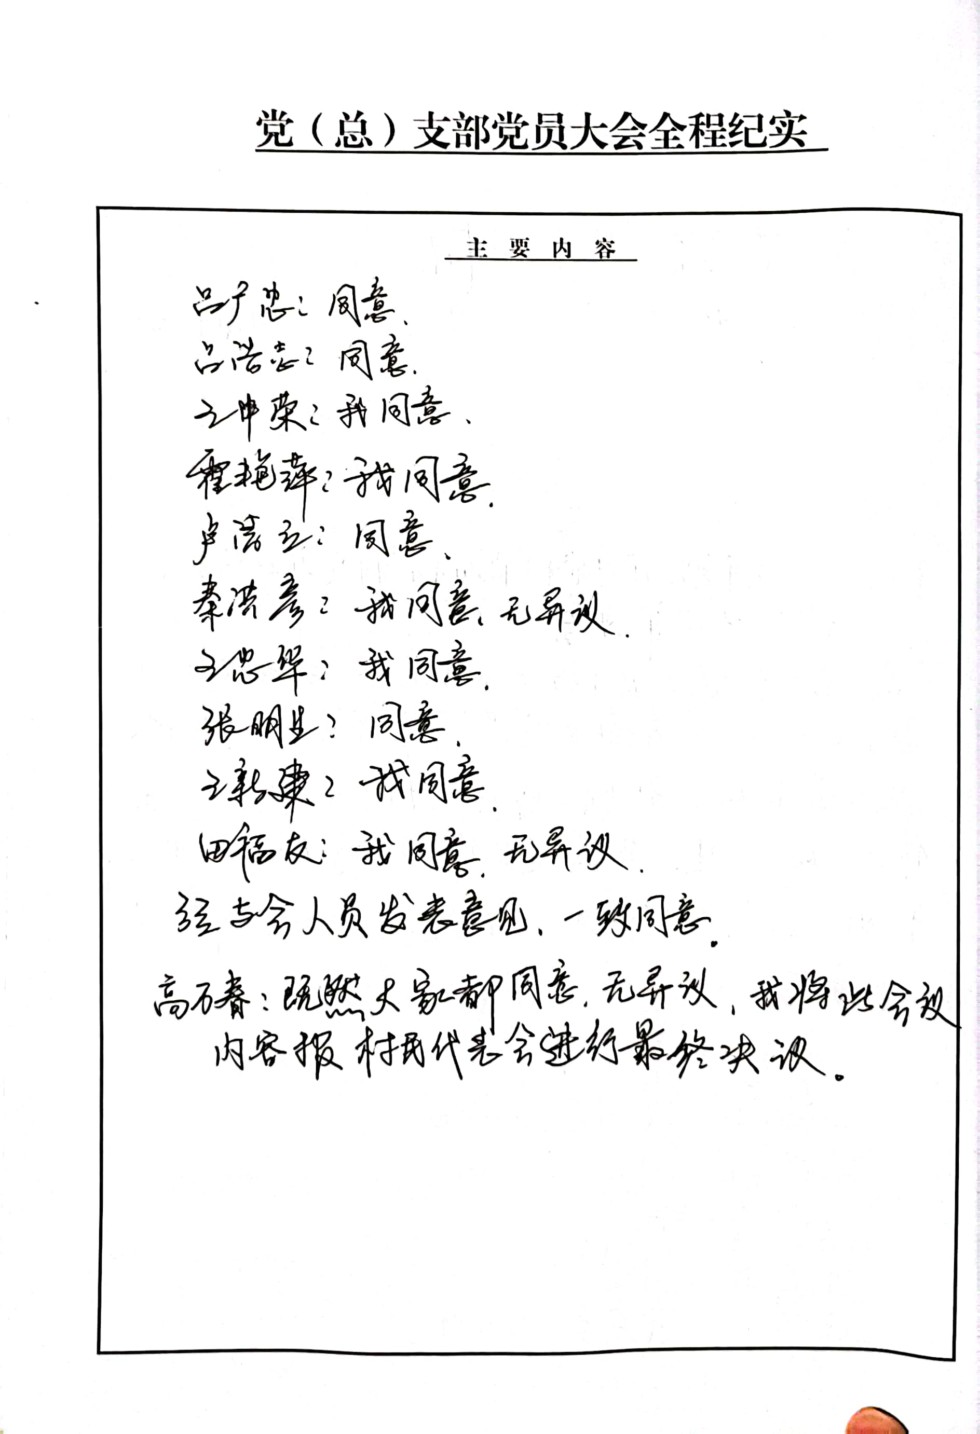 党（总）支部党员大会全程纪实
主要内容
吕广忠：同意.
吕浩志：同意.
王申荣：我同意.
霍艳萍：我同意.
卢浩立：同意.
秦洪彦：我同意，无异议.
王忠华：我同意.
张明生：同意.
王新建：我同意.
田福友：我同意，无异议.
经与会人员发表意见，一致同意。
高万春：既然大家都同意，无异议，我将此会议
内容报村民代表会进行最终决议。